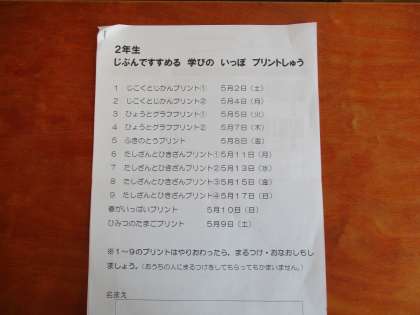 2年生
じぶんですすめる 学びの いっぽ プリントしゅう
1 じこくとじかんプリント① 5月2日（土）
2 じこくとじかんプリント② 5月4日（月）
3 ひょうとグラフプリント① 5月5日（火）
4 ひょうとグラフプリント② 5月7日（木）
5 ふきのとうプリント 5月8日（金）
6 たしざんとひきざんプリント①5月11日（月）
7 たしざんとひきざんプリント②5月13日（水）
8 たしざんとひきざんプリント③5月15日（金）
9 たしざんとひきざんプリント④5月17日（日）
春がいっぱいプリント 5月10日（日）
ひみつのたまごプリント 5月9日（土）
※1～9のプリントはやりおわったら，まるつけ・おなおしもし
ましょう。（おうちの人にまるつけをしてもらってもかまいません。）
名まえ